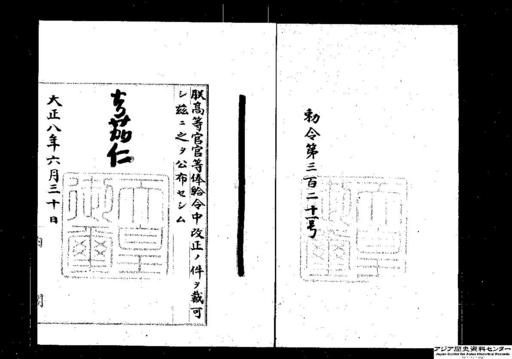 勅令第三百二十一号
朕高等官官等俸給令中改正ノ件ヲ裁可
シ茲ニ之ヲ公布セシム
嘉仁
天皇御璽
大正八年六月三十日
内閣
アジア歴史資料センター
Japan Center for Asian Historical Records